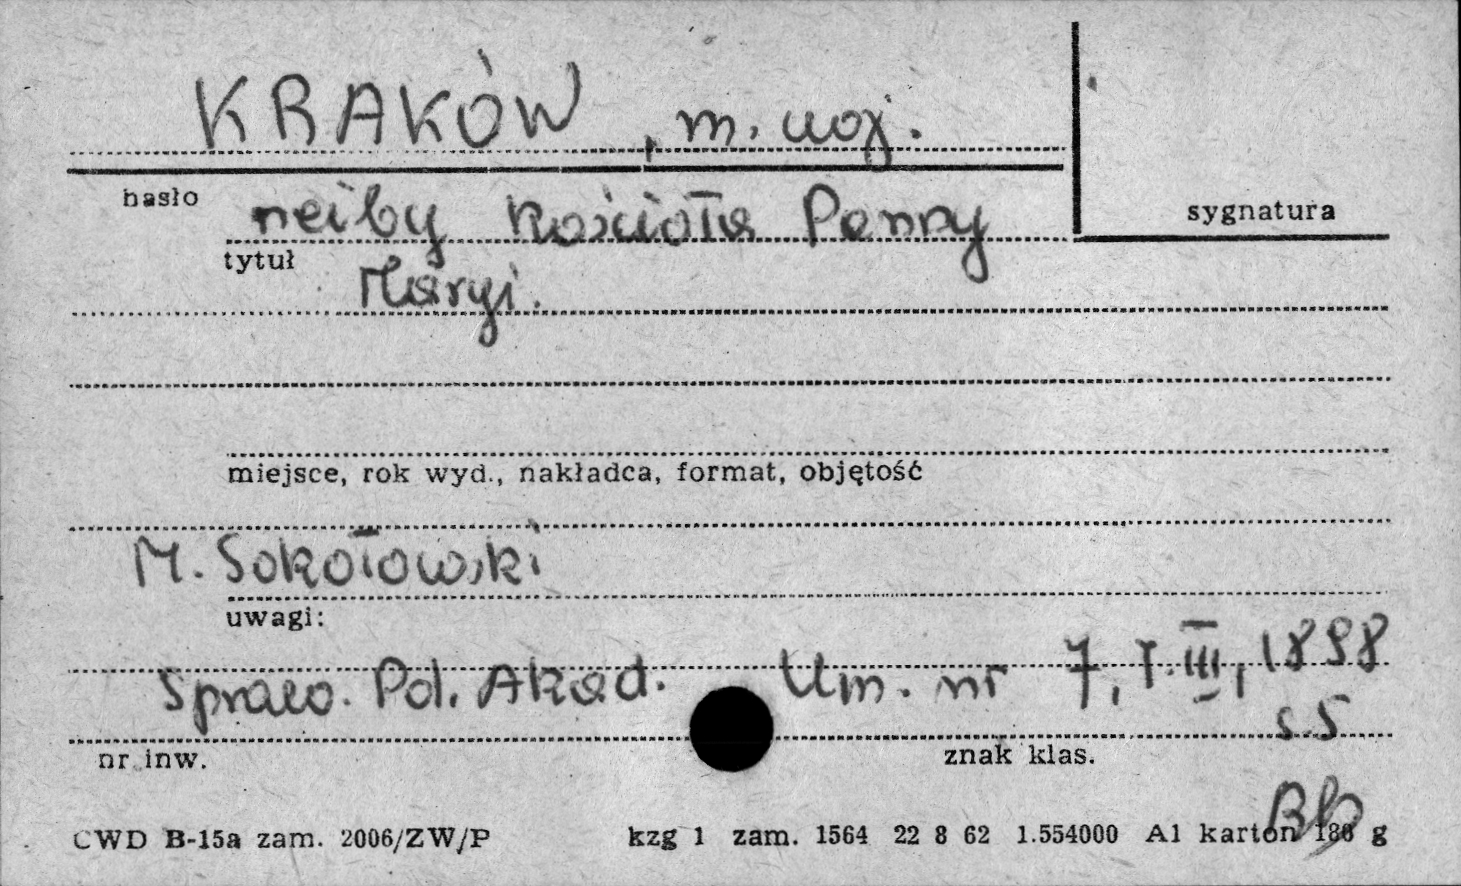 KRAKÓW, m. woj.
hasło
sygnatura
rzeźby kościoła Panny
tytuł
Maryi.
miejsce, rok wyd., nakładca, format, objętość
M. Sokołowski
uwagi:
Spraw. Pol. Akad. Um. nr 7, T. III, 1898
s. 5
nr inw.
znak klas.
CWD B-15a zam. 2006/ZW/P kzg 1 zam. 1564 22 8 62 1.554000 A1 karton 180 g